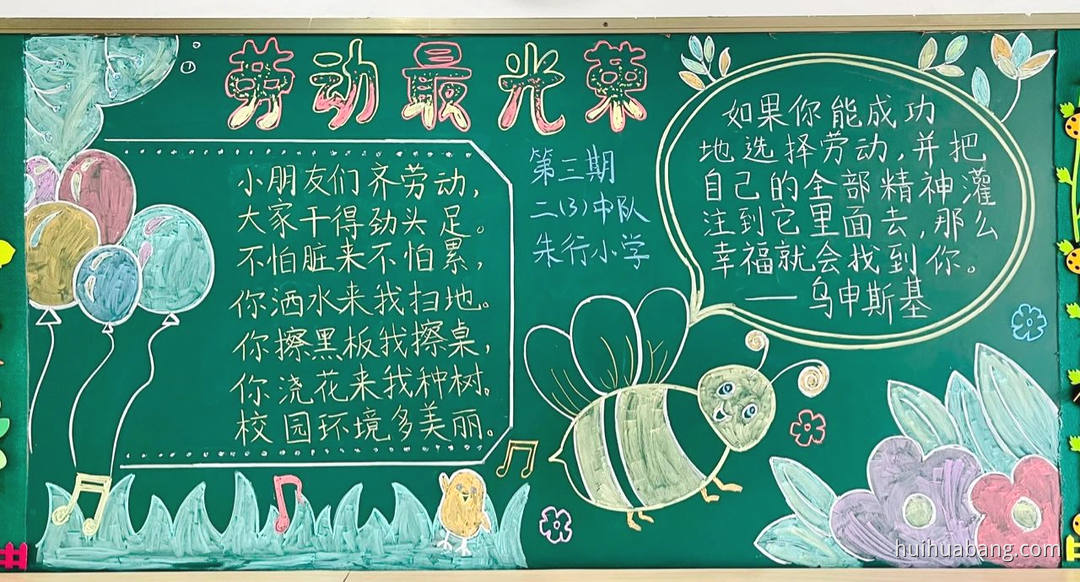 劳动最光荣
小朋友们齐劳动，
大家干得劲头足。
不怕脏来不怕累，
你洒水来我扫地。
你擦黑板我擦桌，
你浇花来我种树。
校园环境多美丽。
第三期
二（3）中队
朱行小学
如果你能成功
地选择劳动，并把
自己的全部精神灌
注到它里面去，那么
幸福就会找到你。
——乌申斯基
huihuabang.com